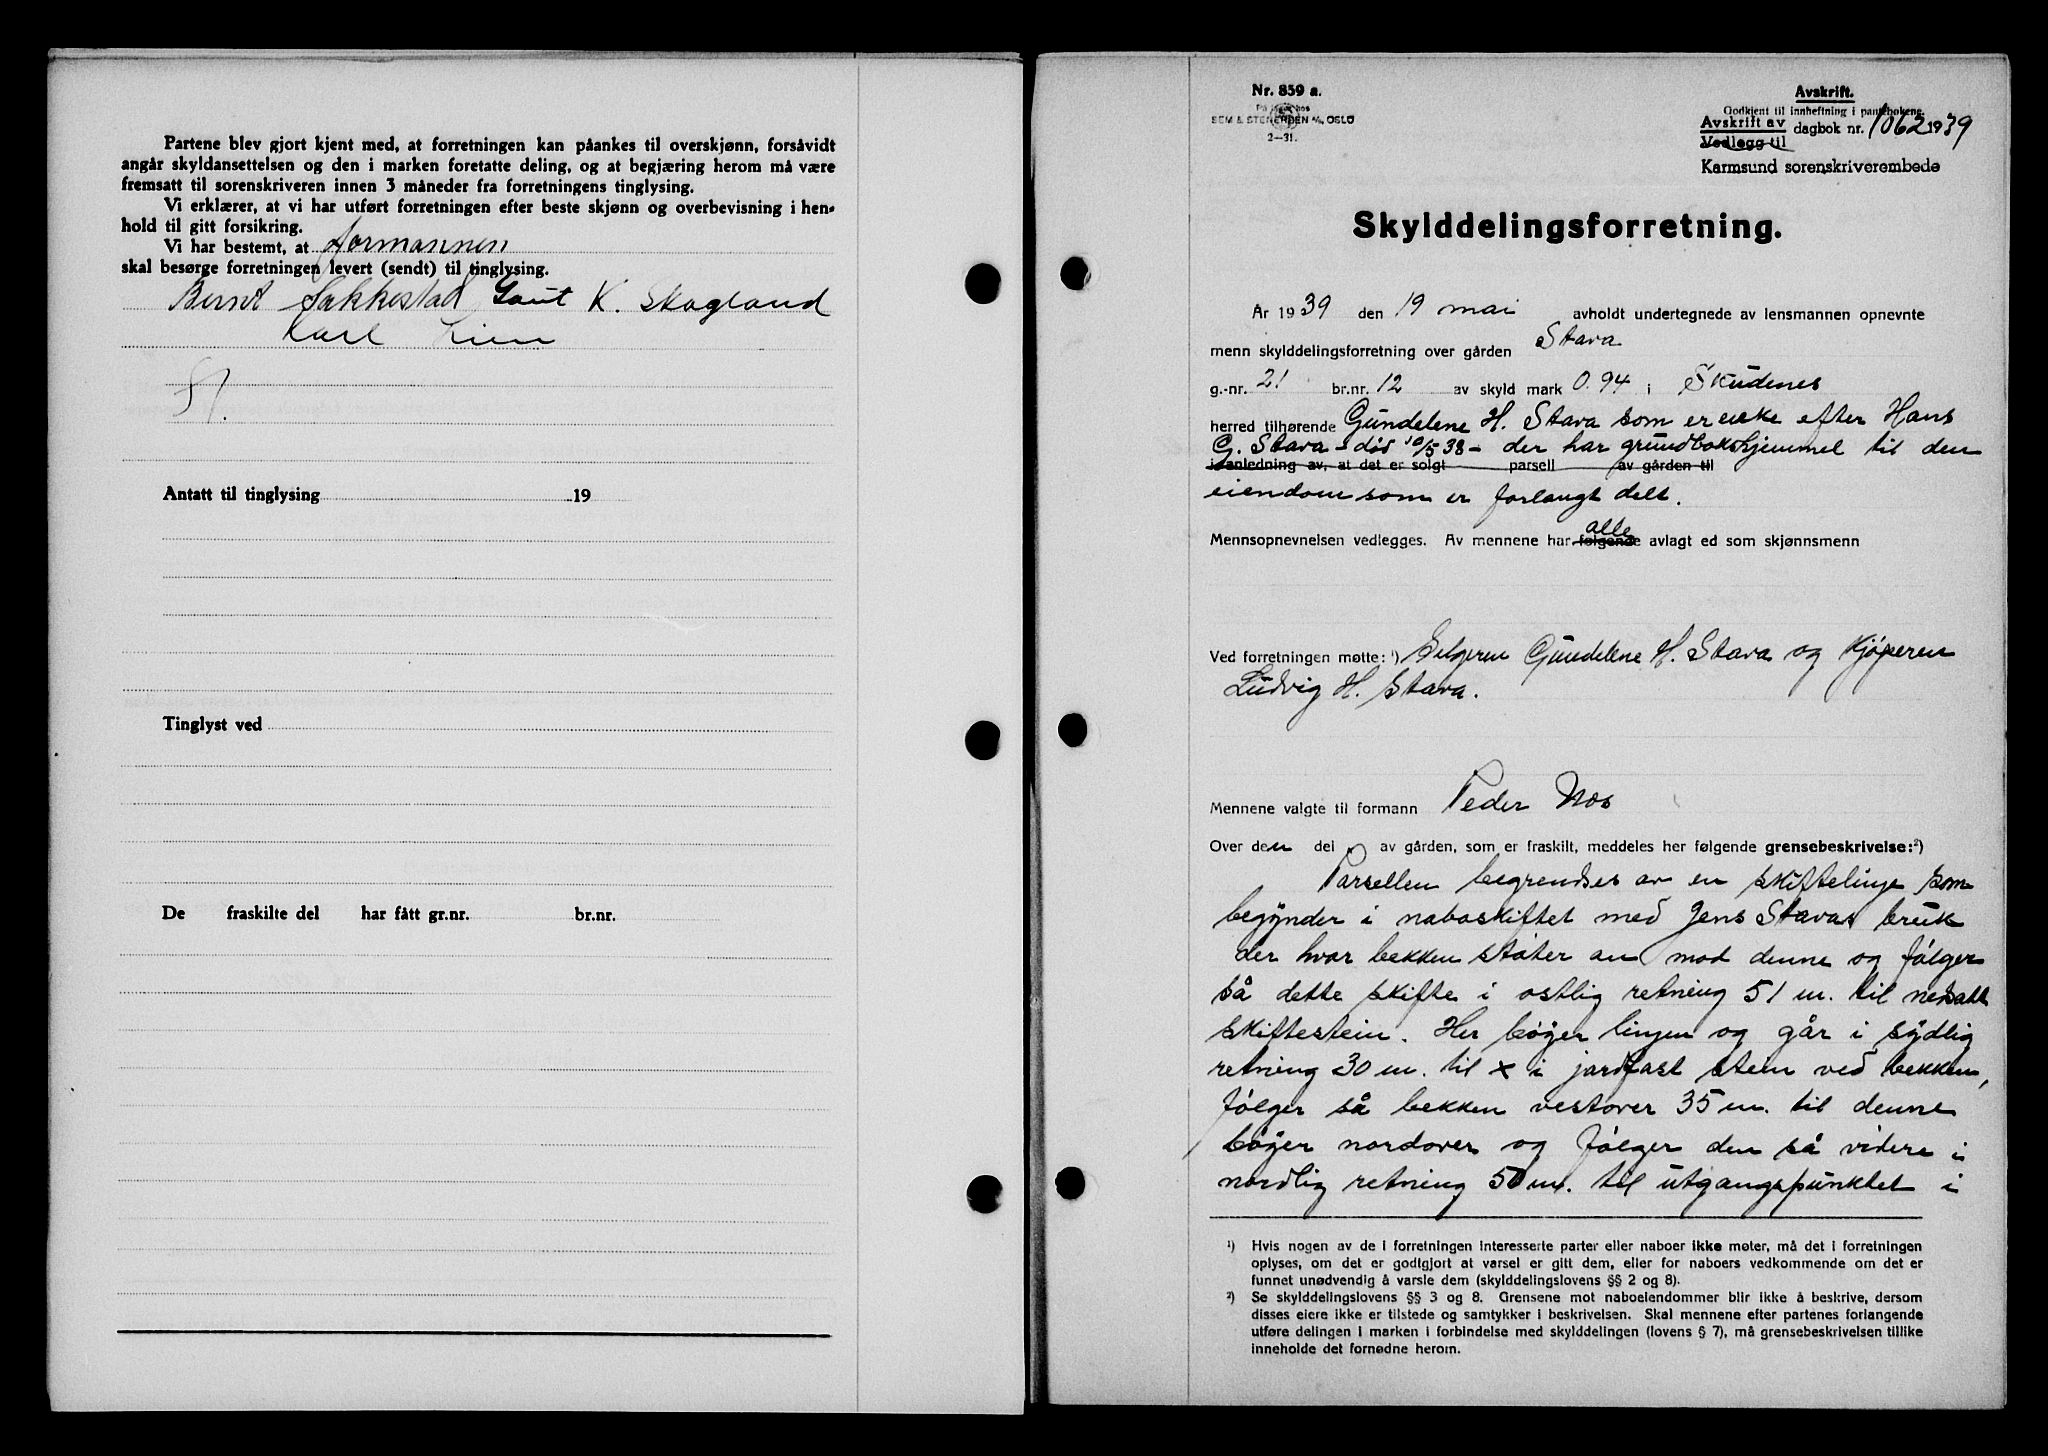 Partene blev gjort kjent med, at forretningen kan påankes til overskjønn, forsåvidt
angår skyldansettelsen og den i marken foretatte deling, og at begjæring herom må være
fremsatt til sorenskriveren innen 3 måneder fra forretningens tinglysing.
Vi erklærer, at vi har utført forretningen efter beste skjønn og overbevisning i hen-
hold til gitt forsikring.
Vi har bestemt, at formannen
skal besørge forretningen levert (sendt) til tinglysing.
Bernt Sakkestad Gaut K. Skogland
Karl Lien
Antatt til tinglysing 19
Tinglyst ved
De fraskilte del har fått gr.nr. br.nr.
Nr. 859 a.
På lager hos
SEM & STENERSEN A/S, OSLO
2—31.
Avskrift.
Godkjent til innheftning i pantebokene.
Avskrift av
Vedlegg til
dagbok nr. 1062 1939
Karmsund sorenskriverembede
Skylddelingsforretning.
År 1939 den 19 mai avholdt undertegnede av lensmannen opnevnte
menn skylddelingsforretning over gården Stava
g.-nr. 21 br.nr. 12 av skyld mark 0.94 i Skudenes
herred tilhørende Gundelene H. Stava som er enke efter Hans
G. Stava - død 10/5 38 - der har grundbokshjemmel til den
i anledning av, at det er solgt parsell av gården til
eiendom som er forlangt delt.
Mennsopnevnelsen vedlegges. Av mennene har følgende alle avlagt ed som skjønnsmenn
Ved forretningen møtte: ¹) Selgeren Gundelene H. Stava og kjøperen
Ludvig H. Stava.
Mennene valgte til formann Peder Nes
Over den del av gården, som er fraskilt, meddeles her følgende grensebeskrivelse: ²)
Parsellen begrendses av en skiftelinje som
begynder i naboskiftet med Jens Stavas bruk
der hvor bekken støter an mod denne og følger
så dette skifte i østlig retning 51 m. til nedsatt
skiftestein. Her bøyer linjen og går i sydlig
retning 30 m. til x i jordfast stein ved bekken,
følger så bekken vestover 35 m. til denne
bøyer nordover og følger den så videre i
nordlig retning 50 m. til utgangspunktet i
¹) Hvis nogen av de i forretningen interesserte parter eller naboer ikke møter, må det i forretningen
oplyses, om det er godtgjort at varsel er gitt dem, eller for naboers vedkommende om det er
funnet unødvendig å varsle dem (skylddelingslovens §§ 2 og 8).
²) Se skylddelingslovens §§ 3 og 8. Grensene mot naboeiendommer blir ikke å beskrive, dersom
disses eiere ikke er tilstede og samtykker i beskrivelsen. Skal mennene efter partenes forlangende
utføre delingen i marken i forbindelse med skylddelingen (lovens § 7), må grensebeskrivelsen tillike
inneholde det fornødne herom.